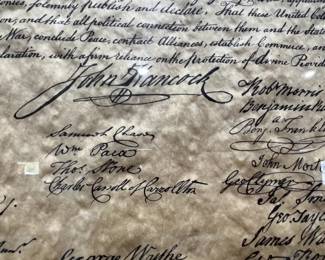 onies, solemnly publish and declare, That these United Colo
on; and that all political connection between them and the State
War, conclude Peace, contract Alliances, establish Commerce, and
laration, with a firm reliance on the Protection of divine Provid
John Hancock
Robt Morris
Benjamin Ru
Benj. Frankli
John Mort
Geo Clymer
Ja. Sm
Geo. Tayl
James W
Samuel Chase
Wm Paca
Thos. Stone
Charles Carroll of Carrollton
George Wythe